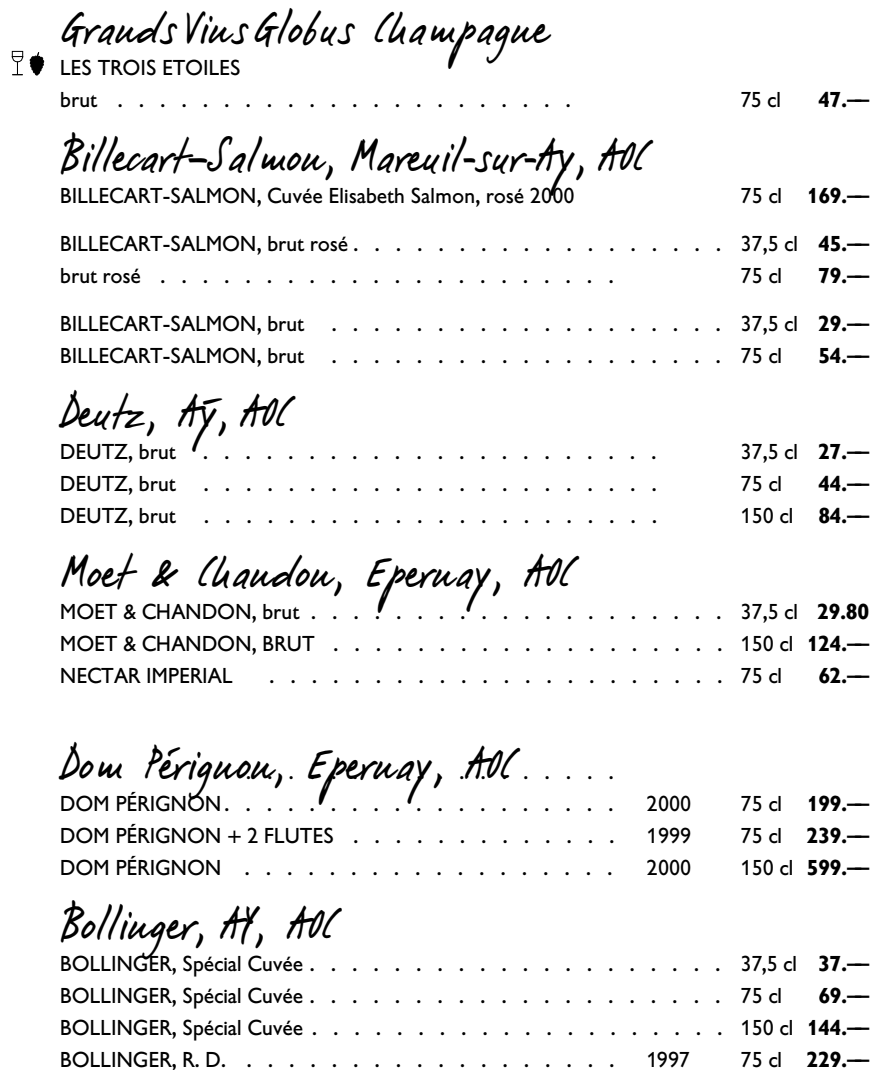 Grands Vins Globus Champagne
LES TROIS ETOILES
brut . . . . . . . . . . . . . . . . . . . . . . 75 cl 47.—
Billecart-Salmon, Mareuil-sur-Ay, AOC
BILLECART-SALMON, Cuvée Elisabeth Salmon, rosé 2000 75 cl 169.—
BILLECART-SALMON, brut rosé . . . . . . . . . . . . . . . . . . 37,5 cl 45.—
brut rosé . . . . . . . . . . . . . . . . . . . . . . 75 cl 79.—
BILLECART-SALMON, brut . . . . . . . . . . . . . . . . . . . 37,5 cl 29.—
BILLECART-SALMON, brut . . . . . . . . . . . . . . . . . . . 75 cl 54.—
Deutz, Aÿ, AOC
DEUTZ, brut . . . . . . . . . . . . . . . . . . . . . . 37,5 cl 27.—
DEUTZ, brut . . . . . . . . . . . . . . . . . . . . . . 75 cl 44.—
DEUTZ, brut . . . . . . . . . . . . . . . . . . . . . . 150 cl 84.—
Moet & Chandon, Epernay, AOC
MOET & CHANDON, brut . . . . . . . . . . . . . . . . . . . . 37,5 cl 29.80
MOET & CHANDON, BRUT . . . . . . . . . . . . . . . . . . . 150 cl 124.—
NECTAR IMPERIAL . . . . . . . . . . . . . . . . . . . . . . 75 cl 62.—
Dom Pérignon, Epernay, AOC . . . . .
DOM PÉRIGNON . . . . . . . . . . . . . . . . . . . 2000 75 cl 199.—
DOM PÉRIGNON + 2 FLUTES . . . . . . . . . . . . . 1999 75 cl 239.—
DOM PÉRIGNON . . . . . . . . . . . . . . . . . . 2000 150 cl 599.—
Bollinger, AY, AOC
BOLLINGER, Spécial Cuvée . . . . . . . . . . . . . . . . . . . . 37,5 cl 37.—
BOLLINGER, Spécial Cuvée . . . . . . . . . . . . . . . . . . . . 75 cl 69.—
BOLLINGER, Spécial Cuvée . . . . . . . . . . . . . . . . . . . . 150 cl 144.—
BOLLINGER, R. D. . . . . . . . . . . . . . . . . . . . 1997 75 cl 229.—